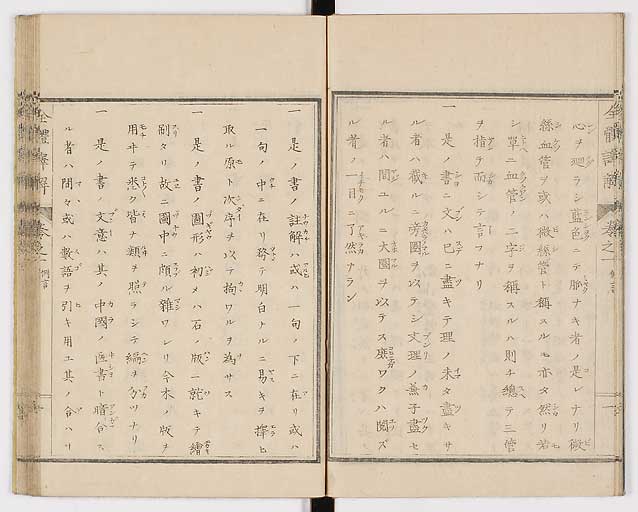 心ヲ廻ラシ藍色ニテ脈ナキ者ノ是レナリ微
絲血管ヲ或ハ微絲管ト稱スルモ亦タ然リ若
シ單ニ血管ノ二字ヲ稱スルハ則チ總テ三管
ヲ指テ而シテ言フナリ
一 是ノ書ニ文ハ已ニ盡キテ理ノ未タ盡キサ
ル者ハ輒ルニ旁圖ヲ以テシ文理ノ兼子盡セ
ル者ハ間ユルニ大圖ヲ以テス庶ワクハ閲ス
ル者ノ一目ニ了然ナラン
全體譯解 卷之一 例言
一 是ノ書ノ註解ハ或ハ一句ノ下ニ在リ或ハ
一句ノ中ニ在リ務テ明白トルニ易キヲ擇ヒ
取ル原ト次序ヲ以テ拘ワルヲ為サス
一 是ノ書ノ圖形ハ初メハ石ノ版ニ託キテ繪
刷タリ故ニ圖中ニ頗ル雜ワレリ今木ノ版ヲ
用ヰテ悉ク皆ナ類ヲ照ラシテ編ヲ分ツナリ
一 是ノ書ノ文意ハ其ノ中國ノ医書ト暗合ス
ル者ハ間々或ハ數語ヲ引キ用エ其ノ合ハリ
全體譯解 卷之一 例言